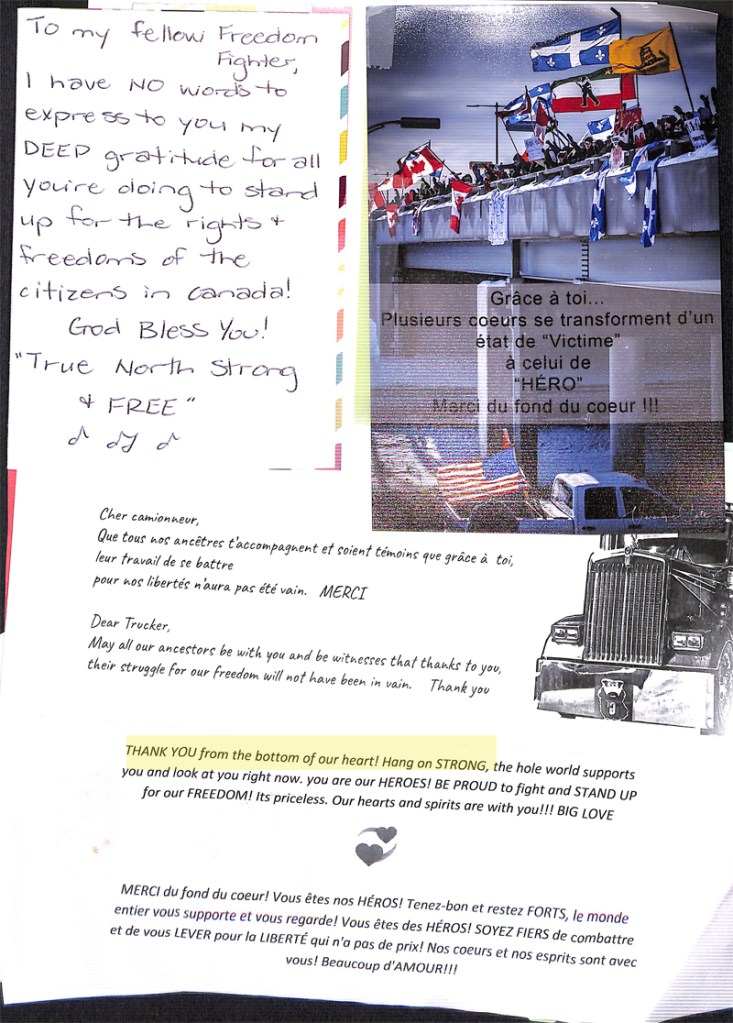 To my fellow Freedom
Fighter,
I have NO words to
express to you my
DEEP gratitude for all
you're doing to stand
up for the rights +
freedoms of the
citizens in Canada!
God Bless You!
"True North Strong
+ FREE"
Grâce à toi...
Plusieurs coeurs se transforment d'un
état de "Victime"
à celui de
"HÉRO"
Merci du fond du coeur !!!
Cher camionneur,
Que tous nos ancêtres t'accompagnent et soient témoins que grâce à toi,
leur travail de se battre
pour nos libertés n'aura pas été vain. MERCI
Dear Trucker,
May all our ancestors be with you and be witnesses that thanks to you,
their struggle for our freedom will not have been in vain. Thank you
THANK YOU from the bottom of our heart! Hang on STRONG, the hole world supports
you and look at you right now. you are our HEROES! BE PROUD to fight and STAND UP
for our FREEDOM! Its priceless. Our hearts and spirits are with you!!! BIG LOVE
MERCI du fond du coeur! Vous êtes nos HÉROS! Tenez-bon et restez FORTS, le monde
entier vous supporte et vous regarde! Vous êtes des HÉROS! SOYEZ FIERS de combattre
et de vous LEVER pour la LIBERTÉ qui n'a pas de prix! Nos coeurs et nos esprits sont avec
vous! Beaucoup d'AMOUR!!!